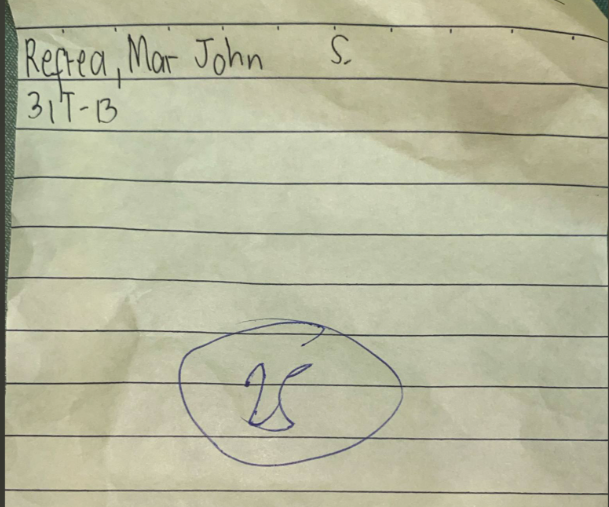 Refrea, Mar John S.
3IT-B
25